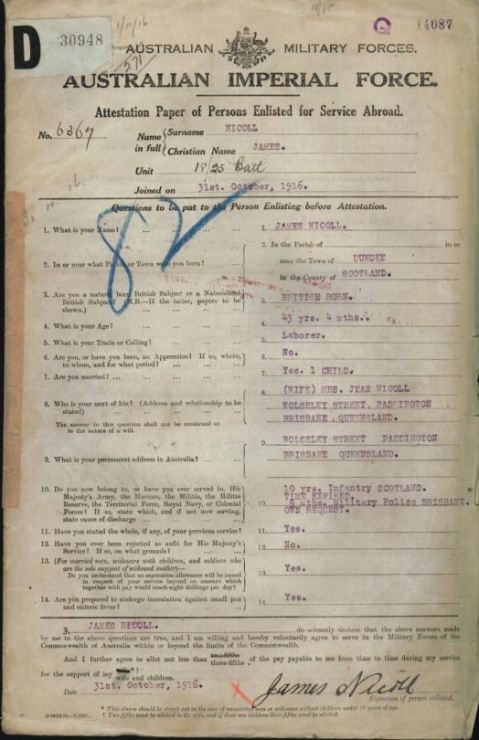 D 30948
14087
AUSTRALIAN MILITARY FORCES.
AUSTRALIAN IMPERIAL FORCE.
Attestation Paper of Persons Enlisted for Service Abroad.
No. 6367
Name in full
Surname NICOLL
Christian Name JAMES.
Unit 19/25 Batt
Joined on 31st. October, 1916.
82
Questions to be put to the Person Enlisting before Attestation.
1. What is your Name? ... ... 1. JAMES NICOLL.
2. In or near what Parish or Town were you born? 2. In the Parish of in or
near the Town of DUNDEE
in the County of SCOTLAND.
3. Are you a natural born British Subject or a Naturalized
British Subject? N.B.—If the latter, papers to be
shown.) 3. BRITISH BORN.
4. What is your Age? ... 4. 43 yrs. 4 mths.
5. What is your Trade or Calling? ... 5. Laborer.
6. Are you, or have you been, an Apprentice? If so, where,
to whom, and for what period? 6. No.
7. Are you married? ... 7. Yes. 1 CHILD.
8. Who is your next of kin? (Address and relationship to be
stated) 8. (WIFE) MRS. JEAN NICOLL
WOLSELEY STREET, PADDINGTON
BRISBANE, QUEENSLAND.
The answer to this question shall not be construed as
in the nature of a will.
9. What is your permanent address in Australia? 9. WOLSELEY STREET PADDINGTON
BRISBANE QUEENSLAND.
10. Do you now belong to, or have you ever served in, His
Majesty's Army, the Marines, the Militia, the Militia
Reserve, the Territorial Force, Royal Navy, or Colonial
Forces? If so, state which, and if not now serving,
state cause of discharge 10. 10 yrs. Infantry SCOTLAND.
TIME EXPIRED.
mths. Military Police BRISBANE.
OWN REQUEST.
11. Have you stated the whole, if any, of your previous service? 11. Yes.
12. Have you ever been rejected as unfit for His Majesty's
Service? If so, on what grounds? 12. No.
13. (For married men, widowers with children, and soldiers who
are the sole support of widowed mother—
Do you understand that no separation allowance will be issued
in respect of your service beyond an amount which
together with pay would reach eight shillings per day? 13. Yes.
14. Are you prepared to undergo inoculation against small pox
and enteric fever? 14. Yes.
JAMES NICOLL. do solemnly declare that the above answers made
by me to the above questions are true, and I am willing and hereby voluntarily agree to serve in the Military Forces of the
Commonwealth of Australia within or beyond the limits of the Commonwealth.
And I further agree to allot not less than two-fifths three-fifths of the pay payable to me from time to time during my service
for the support of my wife wife and children.
Date 31st. October, 1916. James Nicoll
Signature of person enlisted.
* This clause should be struck out in the case of unmarried men or widowers without children under 18 years of age.
† Two fifths must be allotted to the wife, and if there are children three fifths must be allotted.